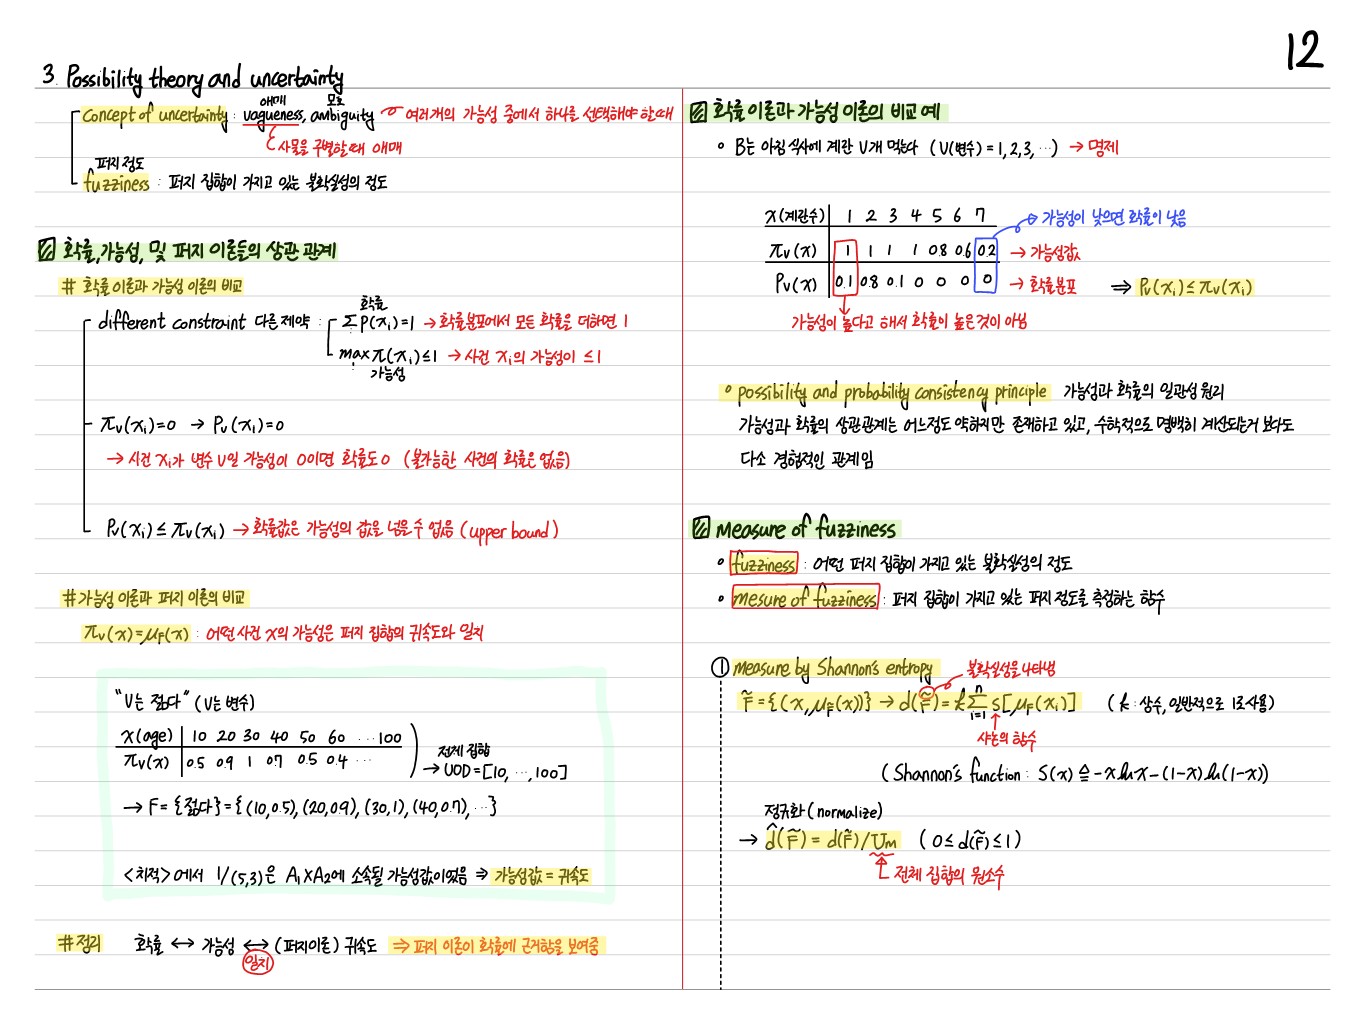 12
3. Possibility theory and uncertainty
애매 모호
concept of uncertainty : vagueness, ambiguity → 여러개의 가능성 중에서 하나를 선택해야 할 때
사물을 구별할 때 애매
퍼지 정도
fuzziness : 퍼지 집합이 가지고 있는 불확실성의 정도
확률, 가능성, 및 퍼지 이론들의 상관 관계
# 확률 이론과 가능성 이론의 비교
확률
different constraint 다른 제약 : ΣP(xᵢ)=1 → 확률분포에서 모든 확률을 더하면 1
max π(xᵢ)≤1 → 사건 xᵢ의 가능성이 ≤1
가능성
πᵥ(xᵢ)=0 → Pᵥ(xᵢ)=0
→ 사건 xᵢ가 변수 v일 가능성이 0이면 확률도 0 (불가능한 사건의 확률은 없음)
Pᵥ(xᵢ) ≤ πᵥ(xᵢ) → 확률값은 가능성의 값을 넘을 수 없음 (upper bound)
# 가능성 이론과 퍼지 이론의 비교
πᵥ(x)=μF(x) : 어떤 사건 x의 가능성은 퍼지 집합의 귀속도와 일치
"V는 젊다" (V는 변수)
x(age) 10 20 30 40 50 60 ⋯ 100
πᵥ(x) 0.5 0.9 1 0.7 0.5 0.4 ⋯
전체 집합
→ UOD=[10, ⋯, 100]
→ F = {젊다} = {(10,0.5), (20,0.9), (30,1), (40,0.7), ⋯}
<치적>에서 1/(5,3)은 A₁×A₂에 소속될 가능성값이었음 ⇒ 가능성값 = 귀속도
# 정리 확률 ↔ 가능성 ↔ (퍼지이론) 귀속도 ⇒ 퍼지 이론이 확률에 근거함을 보여줌
일치
확률 이론과 가능성 이론의 비교 예
∘ B는 아침 식사에 계란 V개 먹는다 (V(변수) = 1, 2, 3, ⋯) → 명제
x(계란수) 1 2 3 4 5 6 7 → 가능성이 낮으면 확률이 낮음
πᵥ(x) 1 1 1 1 0.8 0.6 0.2 → 가능성값
Pᵥ(x) 0.1 0.8 0.1 0 0 0 0 → 확률분포 ⇒ Pᵥ(xᵢ) ≤ πᵥ(xᵢ)
가능성이 높다고 해서 확률이 높은것이 아님
∘ possibility and probability consistency principle 가능성과 확률의 일관성 원리
가능성과 확률의 상관관계는 어느정도 약하지만 존재하고 있고, 수학적으로 명백히 계산되는거 보다도
다소 경험적인 관계임
measure of fuzziness
∘ fuzziness : 어떤 퍼지 집합이 가지고 있는 불확실성의 정도
∘ mesure of fuzziness : 퍼지 집합이 가지고 있는 퍼지 정도를 측정하는 함수
① measure by Shannon's entropy 불확실성을 나타냄
F̃ = {(x, μF(x))} → d(F̃) = k Σⁿᵢ₌₁ s[μF(xᵢ)] (k : 상수, 일반적으로 1로 사용)
샤논의 함수
(Shannon's function : S(x) ≙ -x ln x - (1-x) ln (1-x))
정규화 (normalize)
→ d̂(F̃) = d(F̃)/Um (0 ≤ d(F̃) ≤ 1)
전체 집합의 원소수